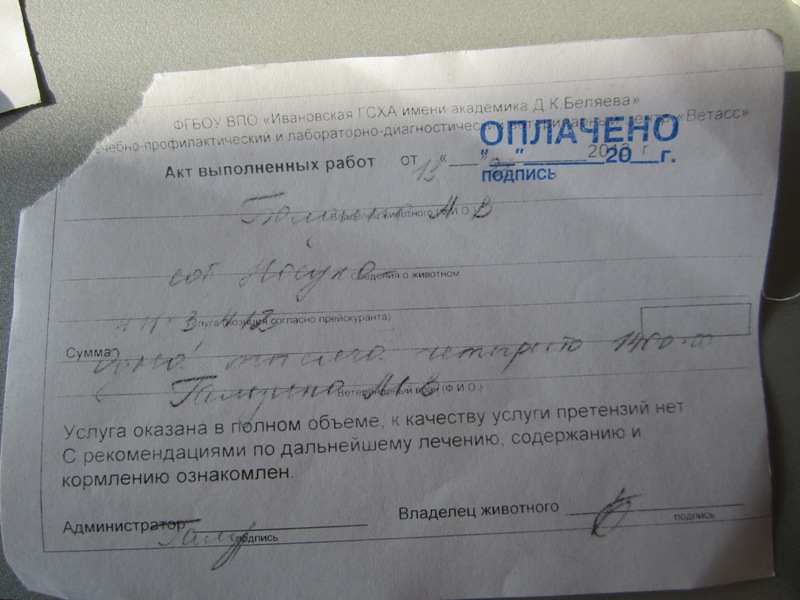 ФГБОУ ВПО «Ивановская ГСХА имени академика Д.К.Беляева»
чебно-профилактический и лабораторно-диагностический ветеринарный центр «Ветасс»
ОПЛАЧЕНО
Акт выполненных работ от 13 "___" 2013 г.
"___"________20__г.
подпись
М В
Владелец животного (Ф.И.О.)
кот
Сведения о животном
3 412
Услуга (позиция согласно прейскуранта)
Сумма
одна тысяча четыреста 1400
М В
Ветеринарный врач (Ф.И.О.)
Услуга оказана в полном объеме, к качеству услуги претензий нет
С рекомендациями по дальнейшему лечению, содержанию и
кормлению ознакомлен.
Администратор Владелец животного
подпись подпись